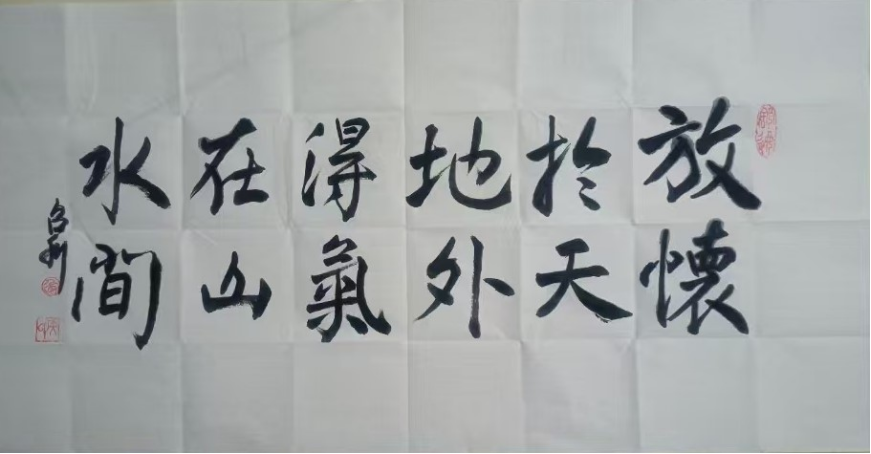 放懷
於天
地外
得氣
在山
水間